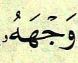 وَجْهَهُۥ